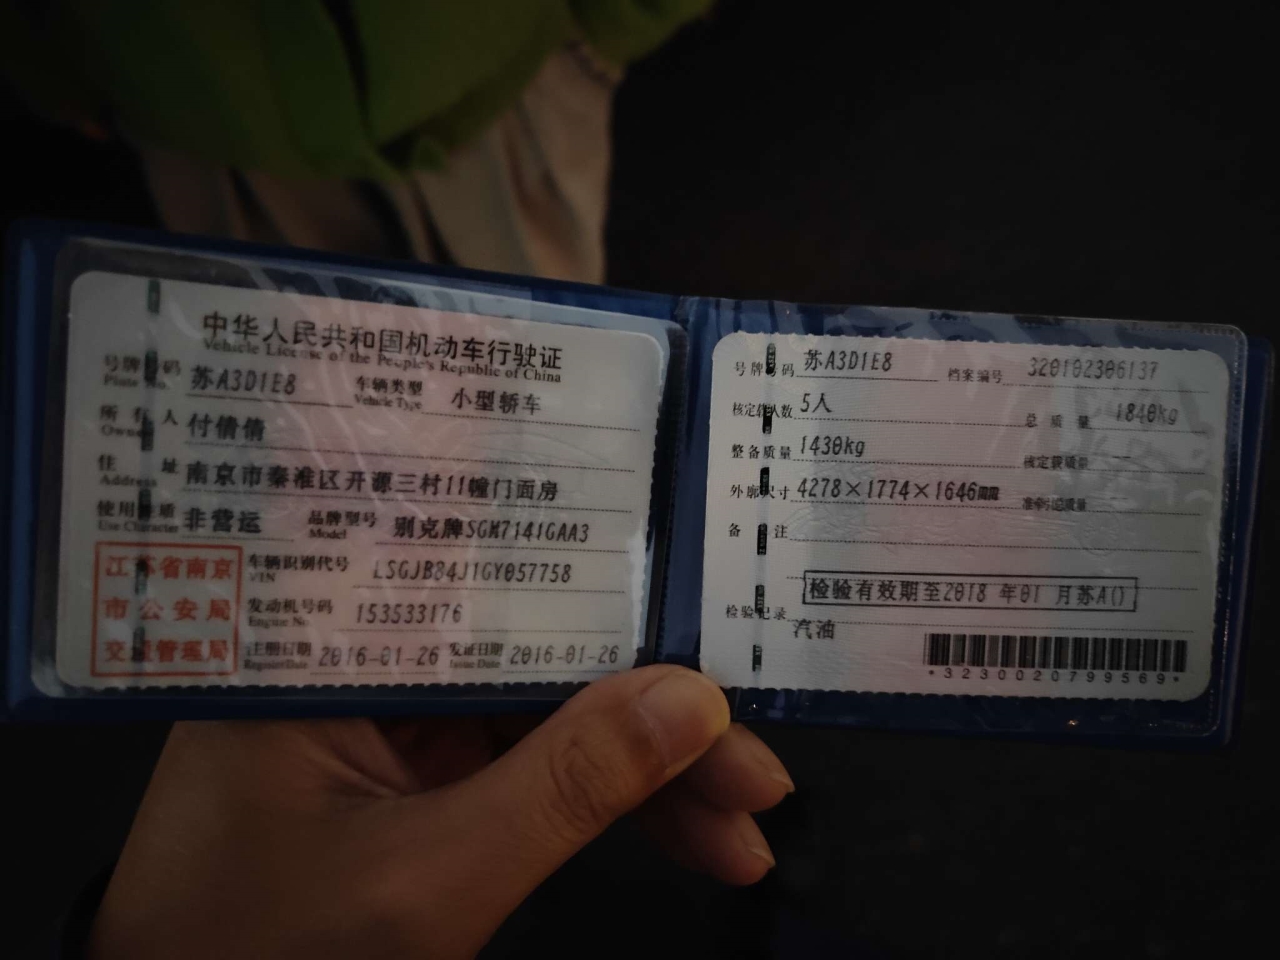 中华人民共和国机动车行驶证
Vehicle License of the People's Republic of China
号牌号码 苏A3D1E8 车辆类型 小型轿车
Plate No. Vehicle Type
所有人 付倩倩
Owner
住址 南京市秦淮区开源三村11幢门面房
Address
使用性质 非营运 品牌型号 别克牌SGM7141GAA3
Use Character Model
江苏省南京
市公安局
交通管理局
车辆识别代号 LSGJB84J1GY057758
VIN
发动机号码 153533176
Engine No.
注册日期 2016-01-26 发证日期 2016-01-26
Register Date Issue Date
号牌号码 苏A3D1E8 档案编号 320102306137
核定载人数 5人 总质量 1840kg
整备质量 1430kg 核定载质量
外廓尺寸 4278×1774×1646mm 准牵引总质量
备注
检验有效期至2018年01月苏A()
检验记录
汽油
*3230020799569*